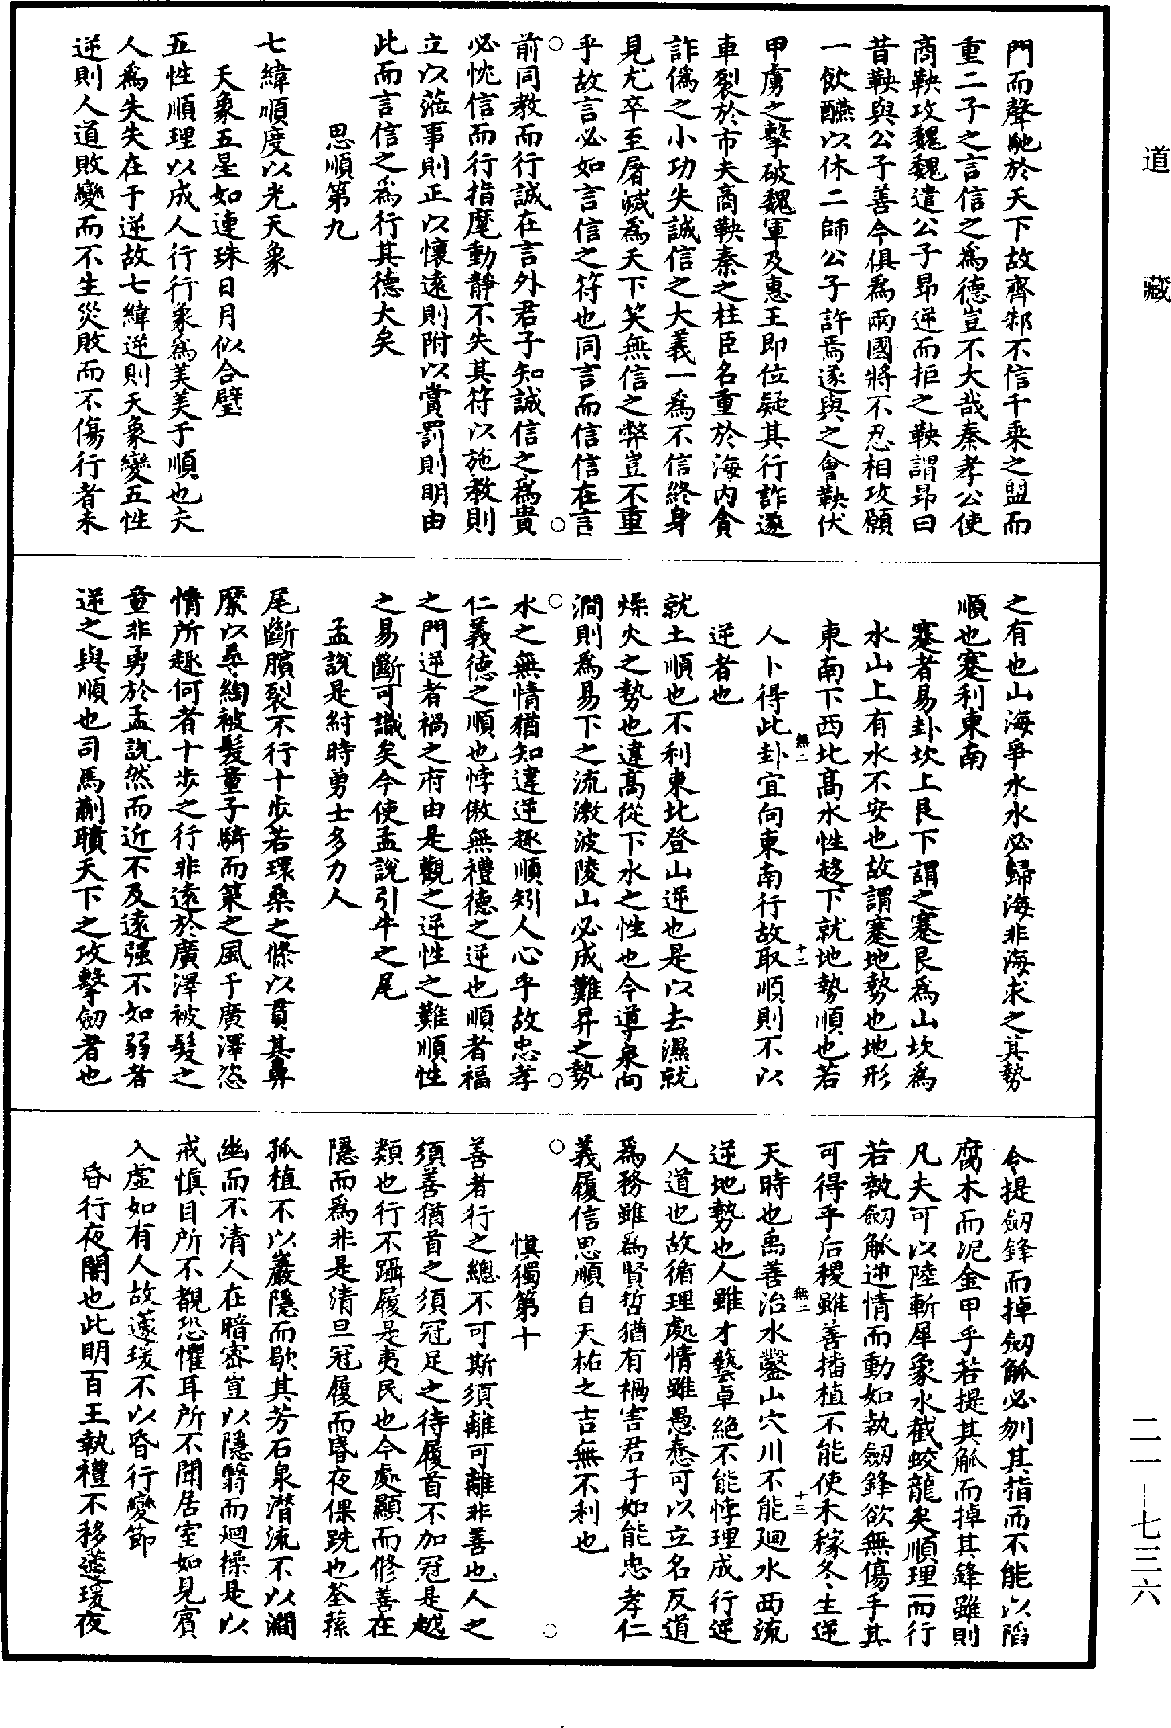 道藏
門而聲馳於天下故齊邾不信千乘之盟而
重二子之言信之爲德豈不大哉秦孝公使
商鞅攻魏魏遣公子昂逆而拒之鞅謂昂曰
昔鞅與公子善今俱爲兩國將不忍相攻願
一飲醼以休二師公子許焉遂與之會鞅伏
甲虜之擊破魏軍及惠王即位疑其行詐遂
車裂於市夫商鞅秦之柱臣名重於海内貪
詐僞之小功失誠信之大義一爲不信終身
見尤卒至屠滅爲天下笑無信之弊豈不重
乎故言必如言信之符也同言而信信在言
前同教而行誠在言外君子知誠信之爲貴
必忱信而行指麾動靜不失其符以施教則
立以蒞事則正以懷遠則附以賞罰則明由
此而言信之爲行其德大矣
思順第九
七緯順度以光天象
天象五星如連珠日月似合璧
五性順理以成人行行象爲美美于順也夫
人爲失失在于逆故七緯逆則天象變五性
逆則人道敗變而不生災敗而不傷行者未
之有也山海爭水水必歸海非海求之其勢
順也蹇利東南
蹇者易卦坎上艮下謂之蹇艮爲山坎爲
水山上有水不安也故謂蹇地勢也地形
東南下西北髙水性趍下就地勢順也若
人卜得此卦宜向東南行故取順則不以
逆者也
就土順也不利東北登山逆也是以去濕就
燥火之勢也違髙從下水之性也今導泉向
澗則爲易下之流激波陵山必成難昇之勢
水之無情猶知違逆趣順矧人心乎故忠孝
仁義德之順也悖傲無禮德之逆也順者福
之門逆者禍之府由是觀之逆性之難順性
之易斷可識矣今使孟說引牛之尾
孟說是紂時勇士多力人
尾斷臏裂不行十步若環桑之條以貫其鼻
縻以尋綯被髮童子騎而策之風于廣澤恣
情所趣何者十步之行非遠於廣澤被髮之
童非勇於孟說然而近不及遠强不如弱者
逆之與順也司馬蒯聵天下之攻擊劒者也
令提劒鋒而掉劒觚必刎其指而不能以䧟
腐木而况金甲乎若提其觚而掉其鋒雖則
凡夫可以陸斬犀象水截蛟龍矣順理而行
若執劒觚逆情而動如執劒鋒欲無傷手其
可得乎后稷雖善播植不能使禾稼冬生逆
天時也禹善治水鑿山穴川不能廻水西流
逆地勢也人雖才藝卓絶不能悖理成行逆
人道也故循理處情雖愚惷可以立名反道
爲務雖爲賢哲猶有禍害君子如能忠孝仁
義履信思順自天祐之吉無不利也
慎獨第十
善者行之總不可斯須離可離非善也人之
須善猶首之須冠足之待履首不加冠是越
類也行不躡履是夷民也今處顯而脩善在
隱而爲非是清旦冠履而昏夜倮跣也荃蓀
孤植不以巖隱而歇其芳石泉潛流不以澗
幽而不清人在暗密豈以隱翳而廻操是以
戒慎目所不覩恐懼耳所不聞居室如見賓
入虚如有人故蘧瑗不以昏行變節
昏行夜闇也此明百王執禮不移蘧瑗夜
無二
十二
無二
十三
二一—七三六